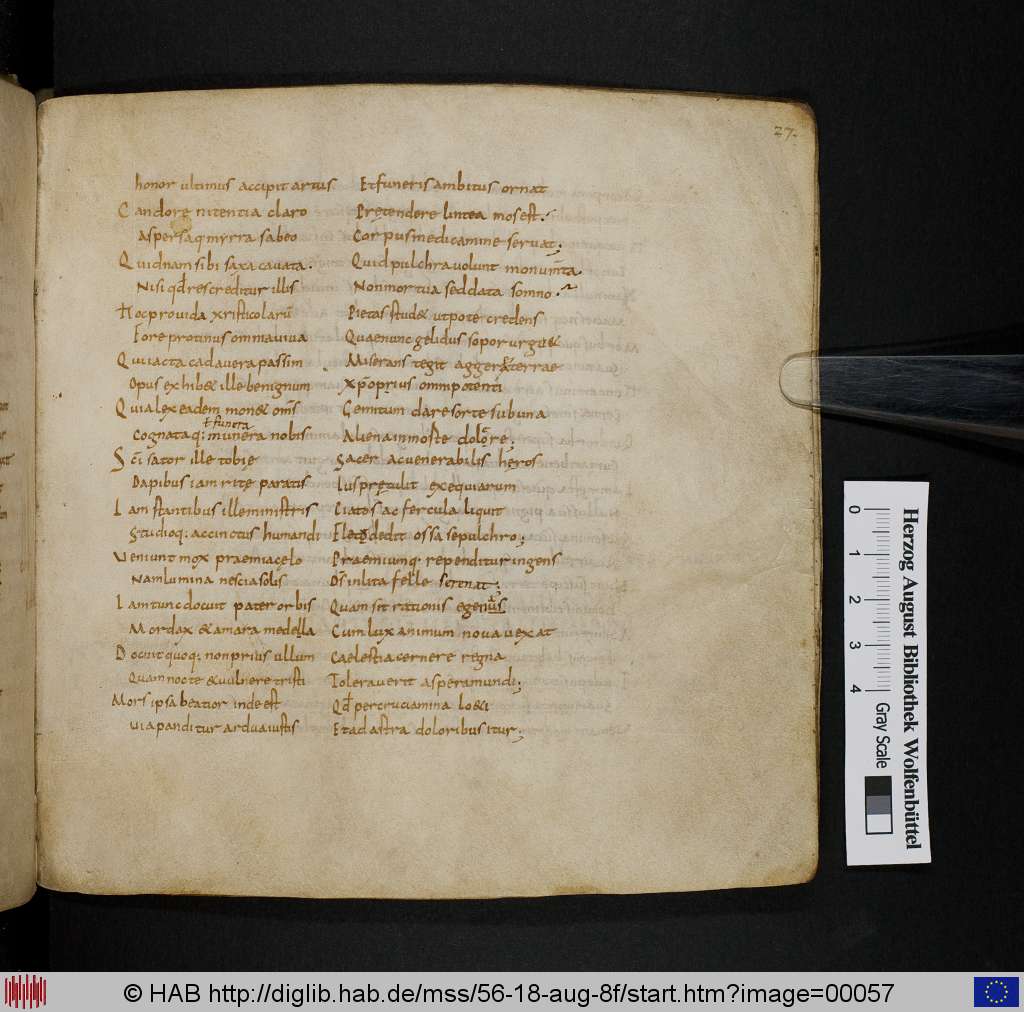 27.
honor ultimus accipit artus Et funeris ambitus ornat
Candore nitentia claro Prętendere lintea mos est.
Aspersaq myrra sabeo Corpus medicamine servat;
Quidnam sibi saxa cavata. Quid pulchra volunt monum̄ta
Nisi qd res creditur illis Non mortua sed data somno.
Hoc provida xristicolarū Pietas stud& utpote credens
Fore protinus omnia viva Quae nunc gelidus sopor urguet
Qui iacta cadavera passim Miserans tegit aggere terrae
Opus exhib& ille benignum Xp̄o prius omnipotenti
Quia lex eadem mon& om̄s Gemitum dare sorte sub una
ł functa
Cognataq; munera nobis Aliena in morte dolore;
Sc̄i sator ille tobię Sacer ac venerabilis heros
Dapibus iam rite paratis Ius prętulit exequiarum
Iam stantibus ille ministris Ciatos ac fercula liquit
Studioq; accinctus humandi Fleto dedit ossa sepulchro;
Veniunt mox praemia cęlo Praemiumq; rependitur ingens
Nam lumina nescia solis Ds̄ inlita felle serenat;
Iam tunc docuit pater orbis Quam sit rationis egenus
Mordax & amara medella Cum lux animum nova vexat
Docuit quoq; non prius ullum Caelestia cernere regna
Quam nocte & vulnere tristi Toleraverit aspera mundi;
Mors ipsa beatior inde est Qd per cruciamina loeti
Via panditur ardua iustis Et ad astra doloribus itur;
0 1 2 3 4
Gray Scale
Herzog August Bibliothek Wolfenbüttel
© HAB http://diglib.hab.de/mss/56-18-aug-8f/start.htm?image=00057